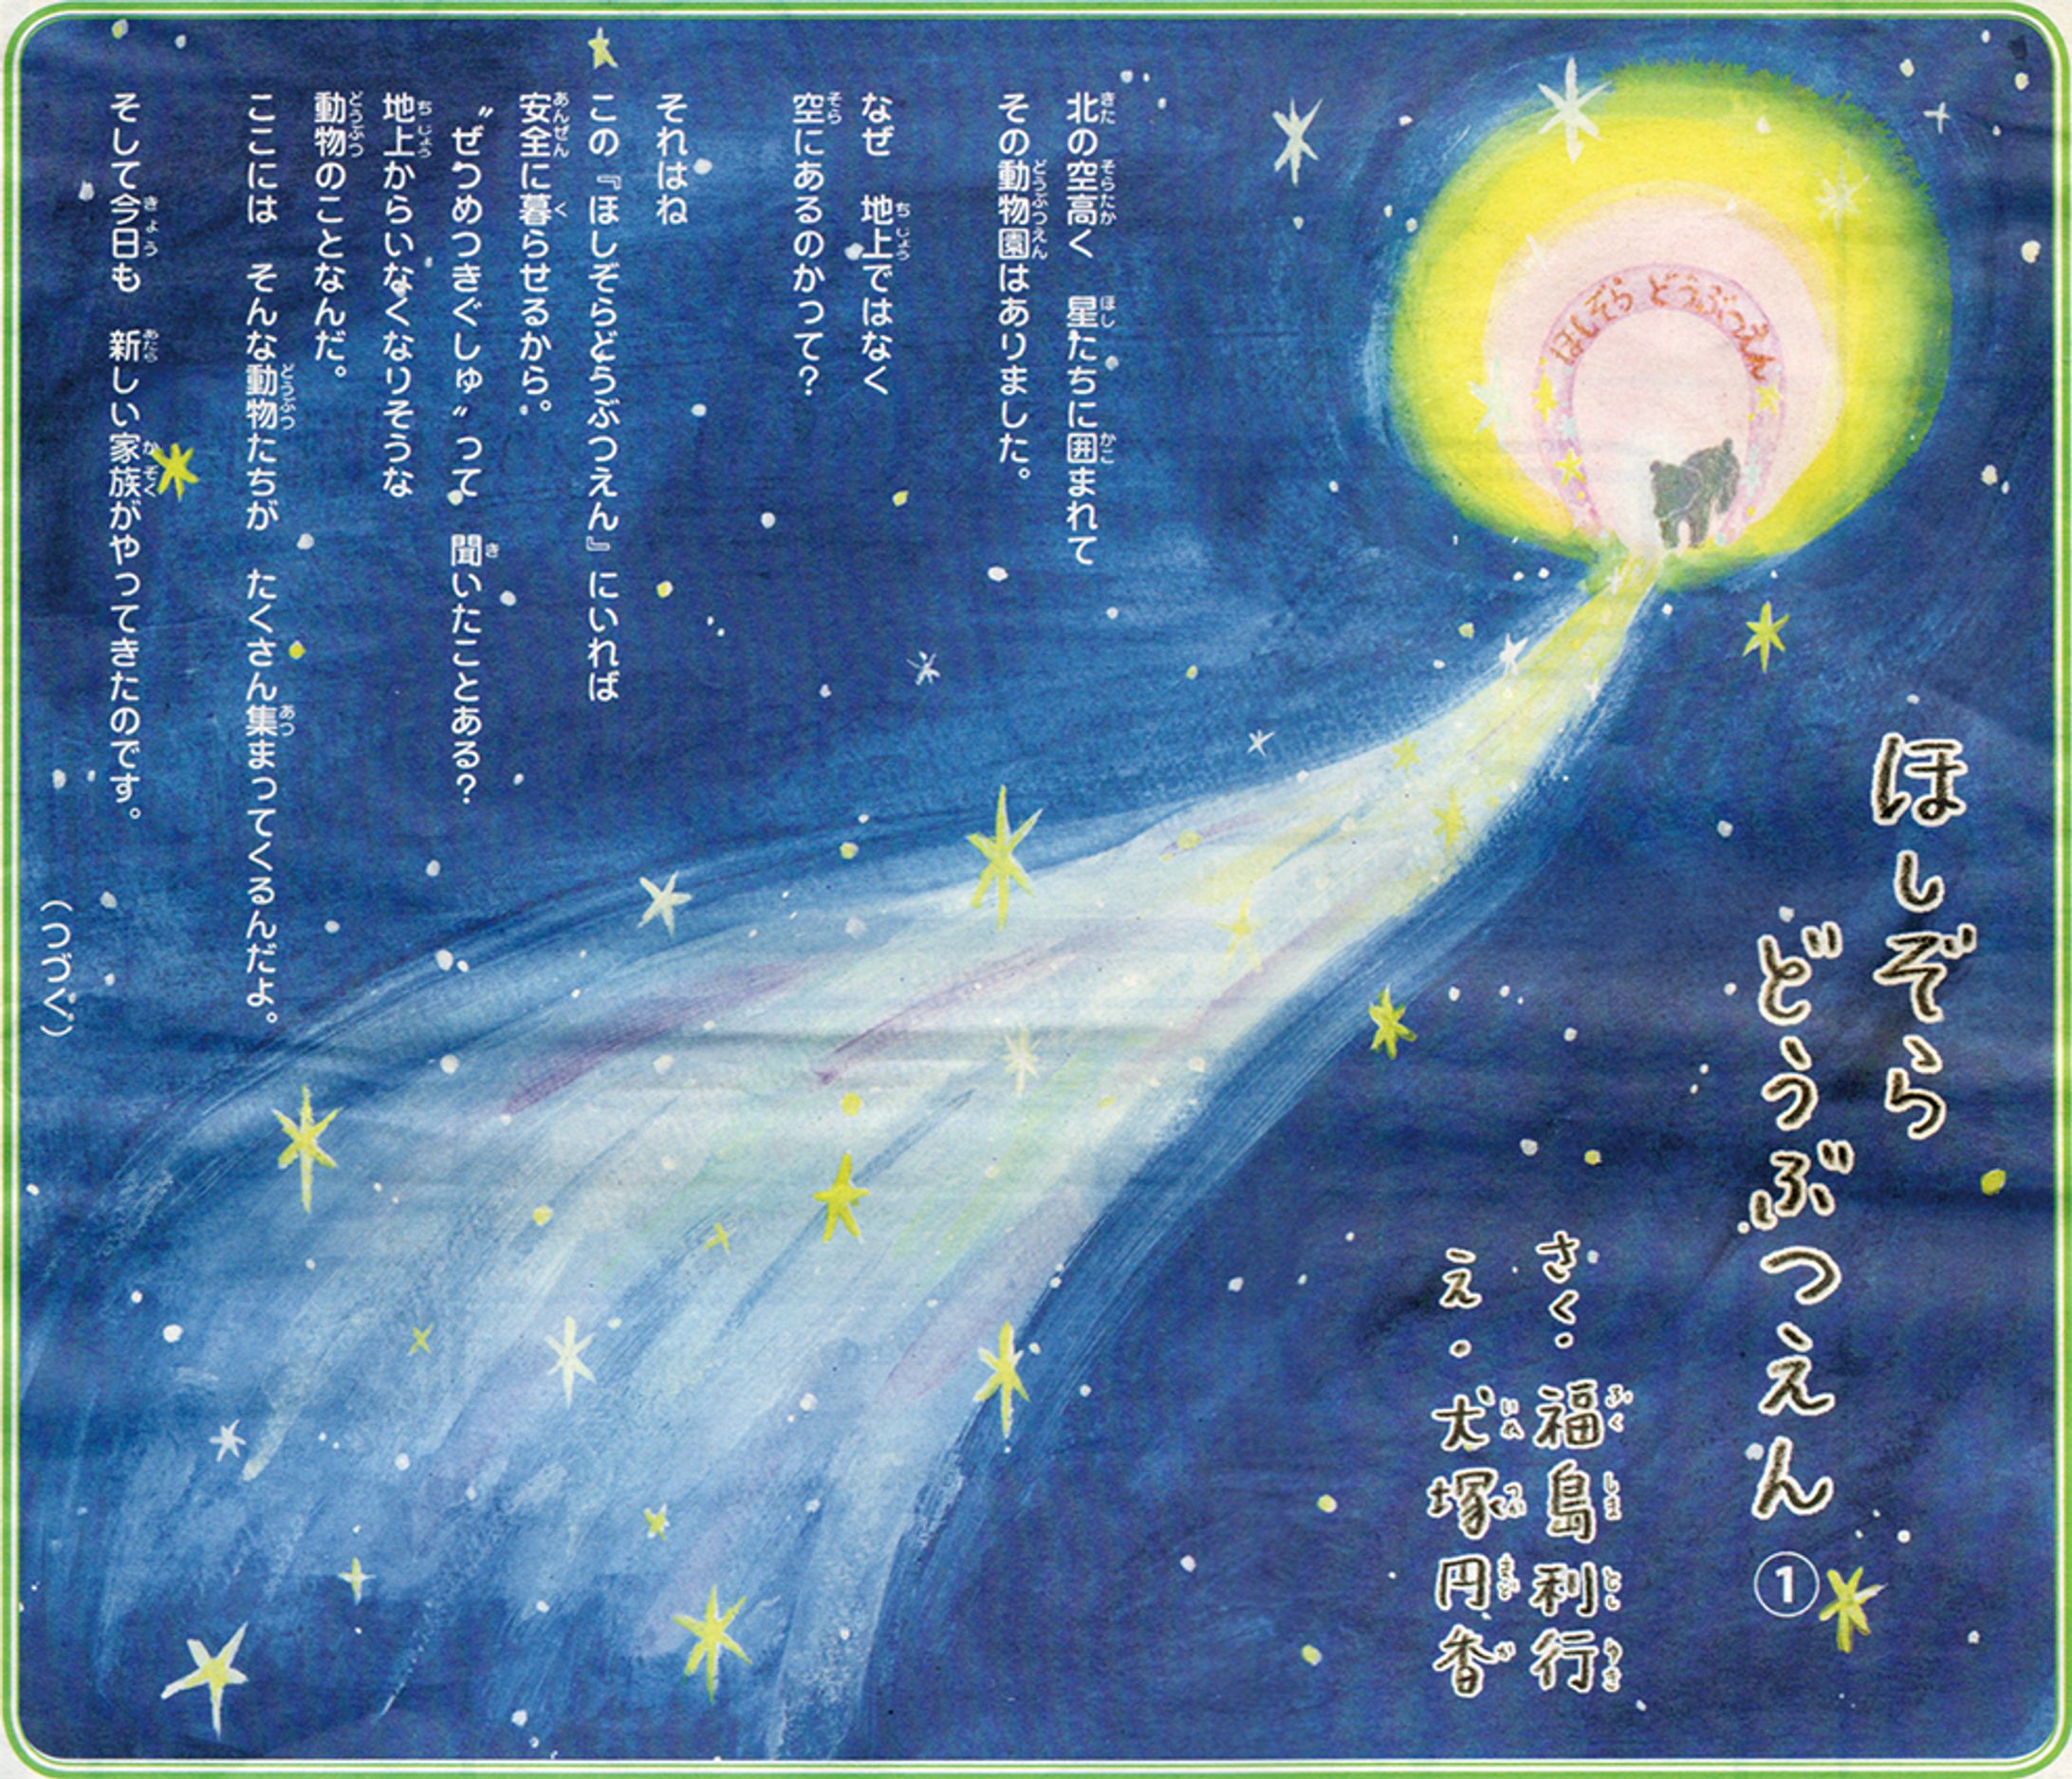 ほしぞら
どうぶつえん ①
さく・福島利行
え・犬塚円香
ほしぞら どうぶつえん
北の空高く　星たちに囲まれて
その動物園はありました。
なぜ　地上ではなく
空にあるのかって？
それはね
この『ほしぞらどうぶつえん』にいれば
安全に暮らせるから。
〝ぜつめつきぐしゅ〟って　聞いたことある？
地上からいなくなりそうな
動物のことなんだ。
ここには　そんな動物たちが　たくさん集まってくるんだよ。
そして今日も　新しい家族がやってきたのです。
（つづく）